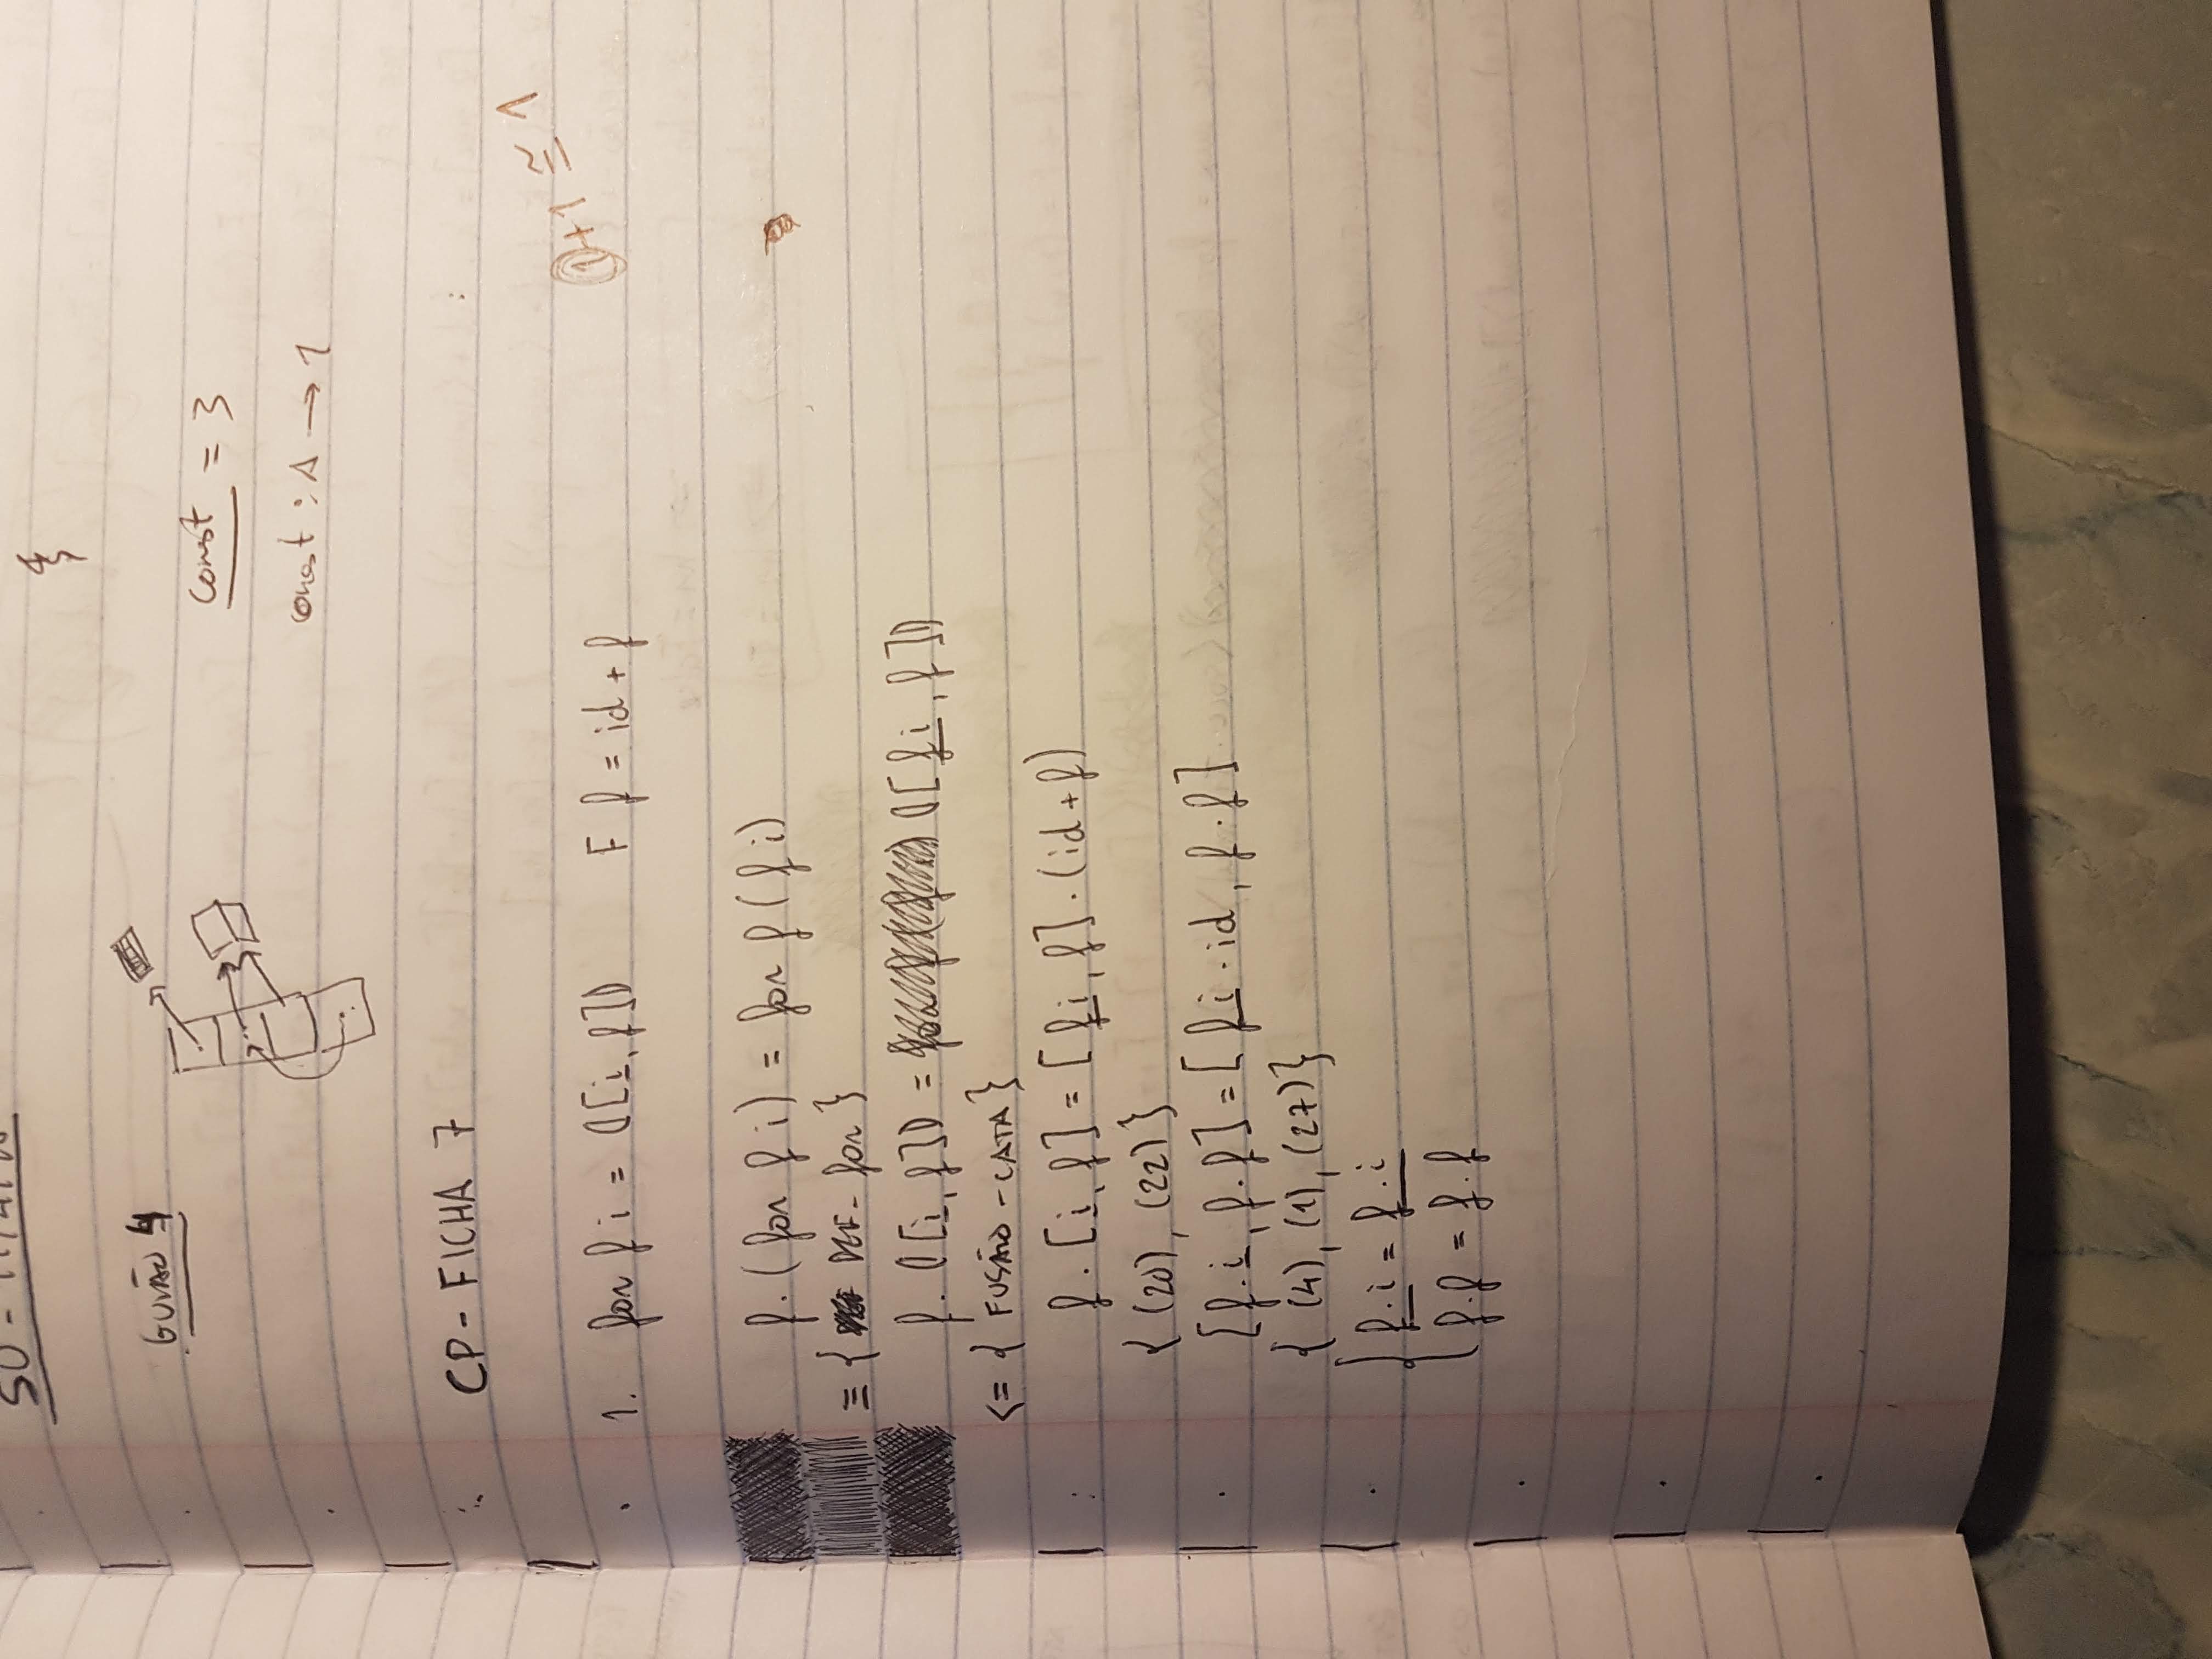 SO -
GUIÃO 4
const = 3
const : A → 1
CP - FICHA 7
1 + 1 ≅ 1
1. for f i = ⦇[i, f]⦈ F f = id + f
f . (for f i) = for f (f i)
≡ { DEF - for }
f . ⦇[i, f]⦈ = ⦇[f i, f]⦈
<= { FUSÃO - CATA }
f . [i, f] = [f i, f] . (id + f)
{ (20), (22) }
[f . i, f . f] = [f i . id, f . f]
{ (4), (1), (27) }
{ f . i = f . i
f . f = f . f